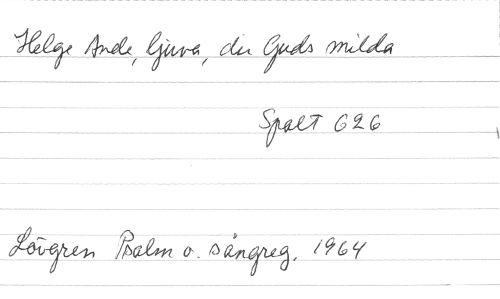 Helge Ande, ljuva, du Guds milda
Spalt 626
Lövgren Psalm o. sångreg. 1964